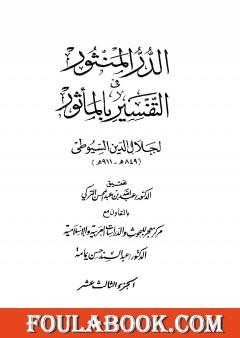 الدر المنثور
في
التفسير بالمأثور
لجلال الدين السيوطي
(٨٤٩هـ - ٩١١هـ)
تحقيق
الدكتور عبد الله بن عبد المحسن التركي
بالتعاون مع
مركز هجر للبحوث والدراسات العربية والإسلامية
الدكتور عبد السند حسن يمامة
الجزء الثالث عشر
FOULABOOK.COM